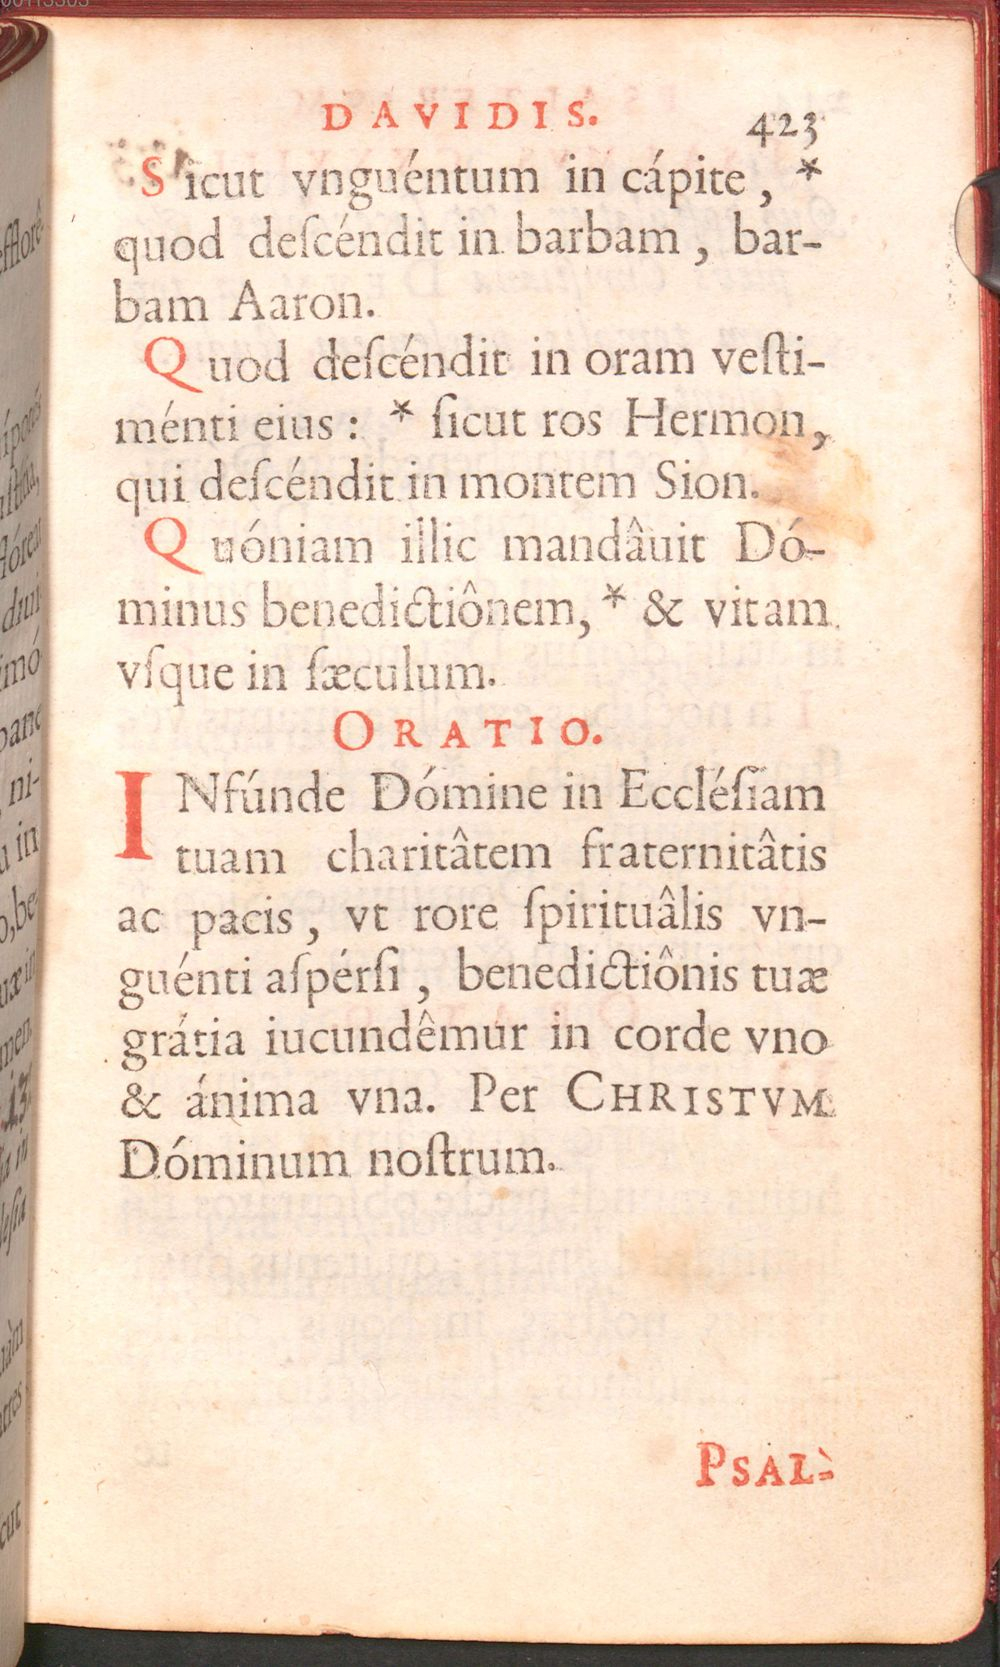 DAVIDIS. 423
Sicut vnguéntum in cápite, *
quod deſcéndit in barbam, bar-
bam Aaron.
Quod deſcéndit in oram veſti-
ménti eius: * ſicut ros Hermon,
qui deſcéndit in montem Sion.
Quóniam illic mandâuit Dó-
minus benedictiônem, * & vitam
vſque in ſæculum.
ORATIO.
INfúnde Dómine in Eccléſiam
tuam charitâtem fraternitâtis
ac pacis, vt rore ſpirituâlis vn-
guénti aſpérſi, benedictiônis tuæ
grátia iucundêmur in corde vno
& ánima vna. Per CHRISTVM
Dóminum noſtrum.
PSAL-